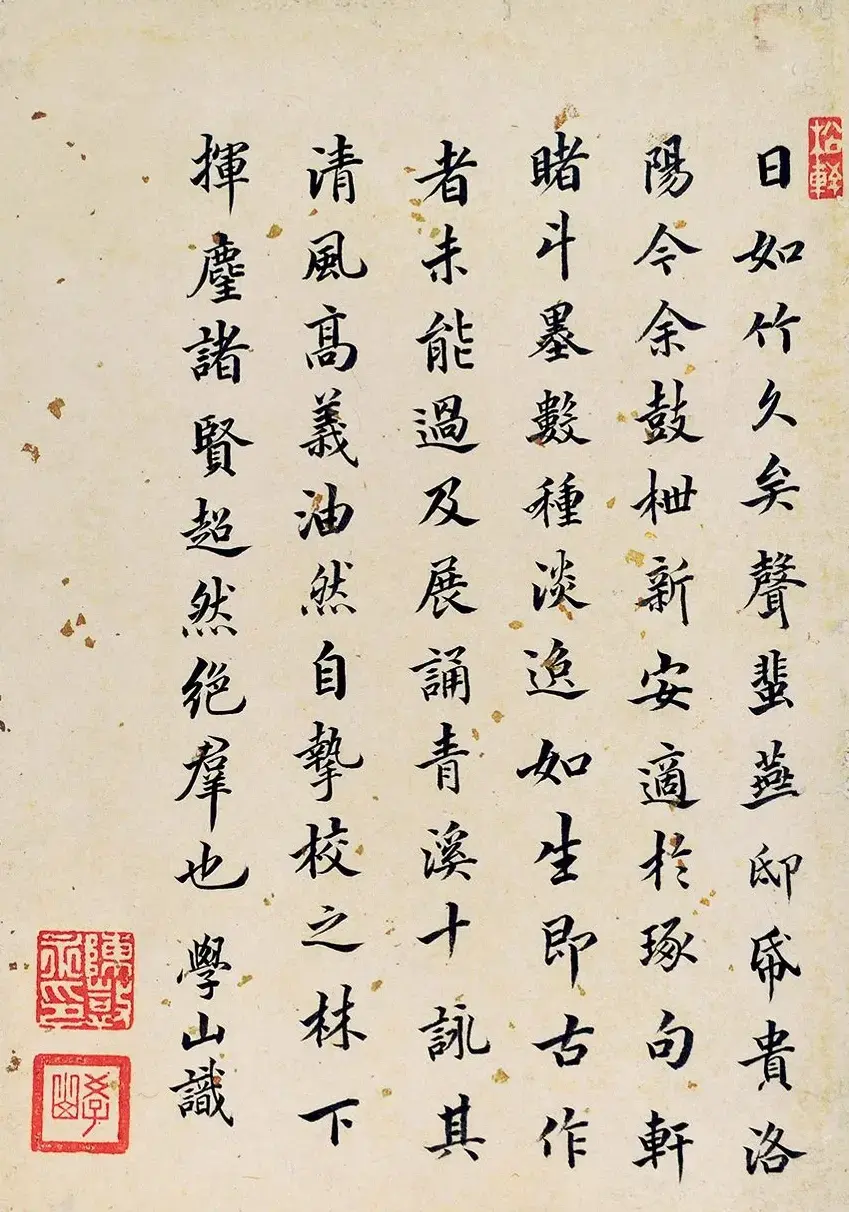 松軒
日如竹久矣聲蜚燕邸帋貴洛
陽今余鼓枻新安適於琢句軒
睹斗墨數種淡逸如生即古作
者未能過及展誦青溪十詠其
清風高義油然自摯校之林下
揮麈諸賢超然絶羣也 學山識